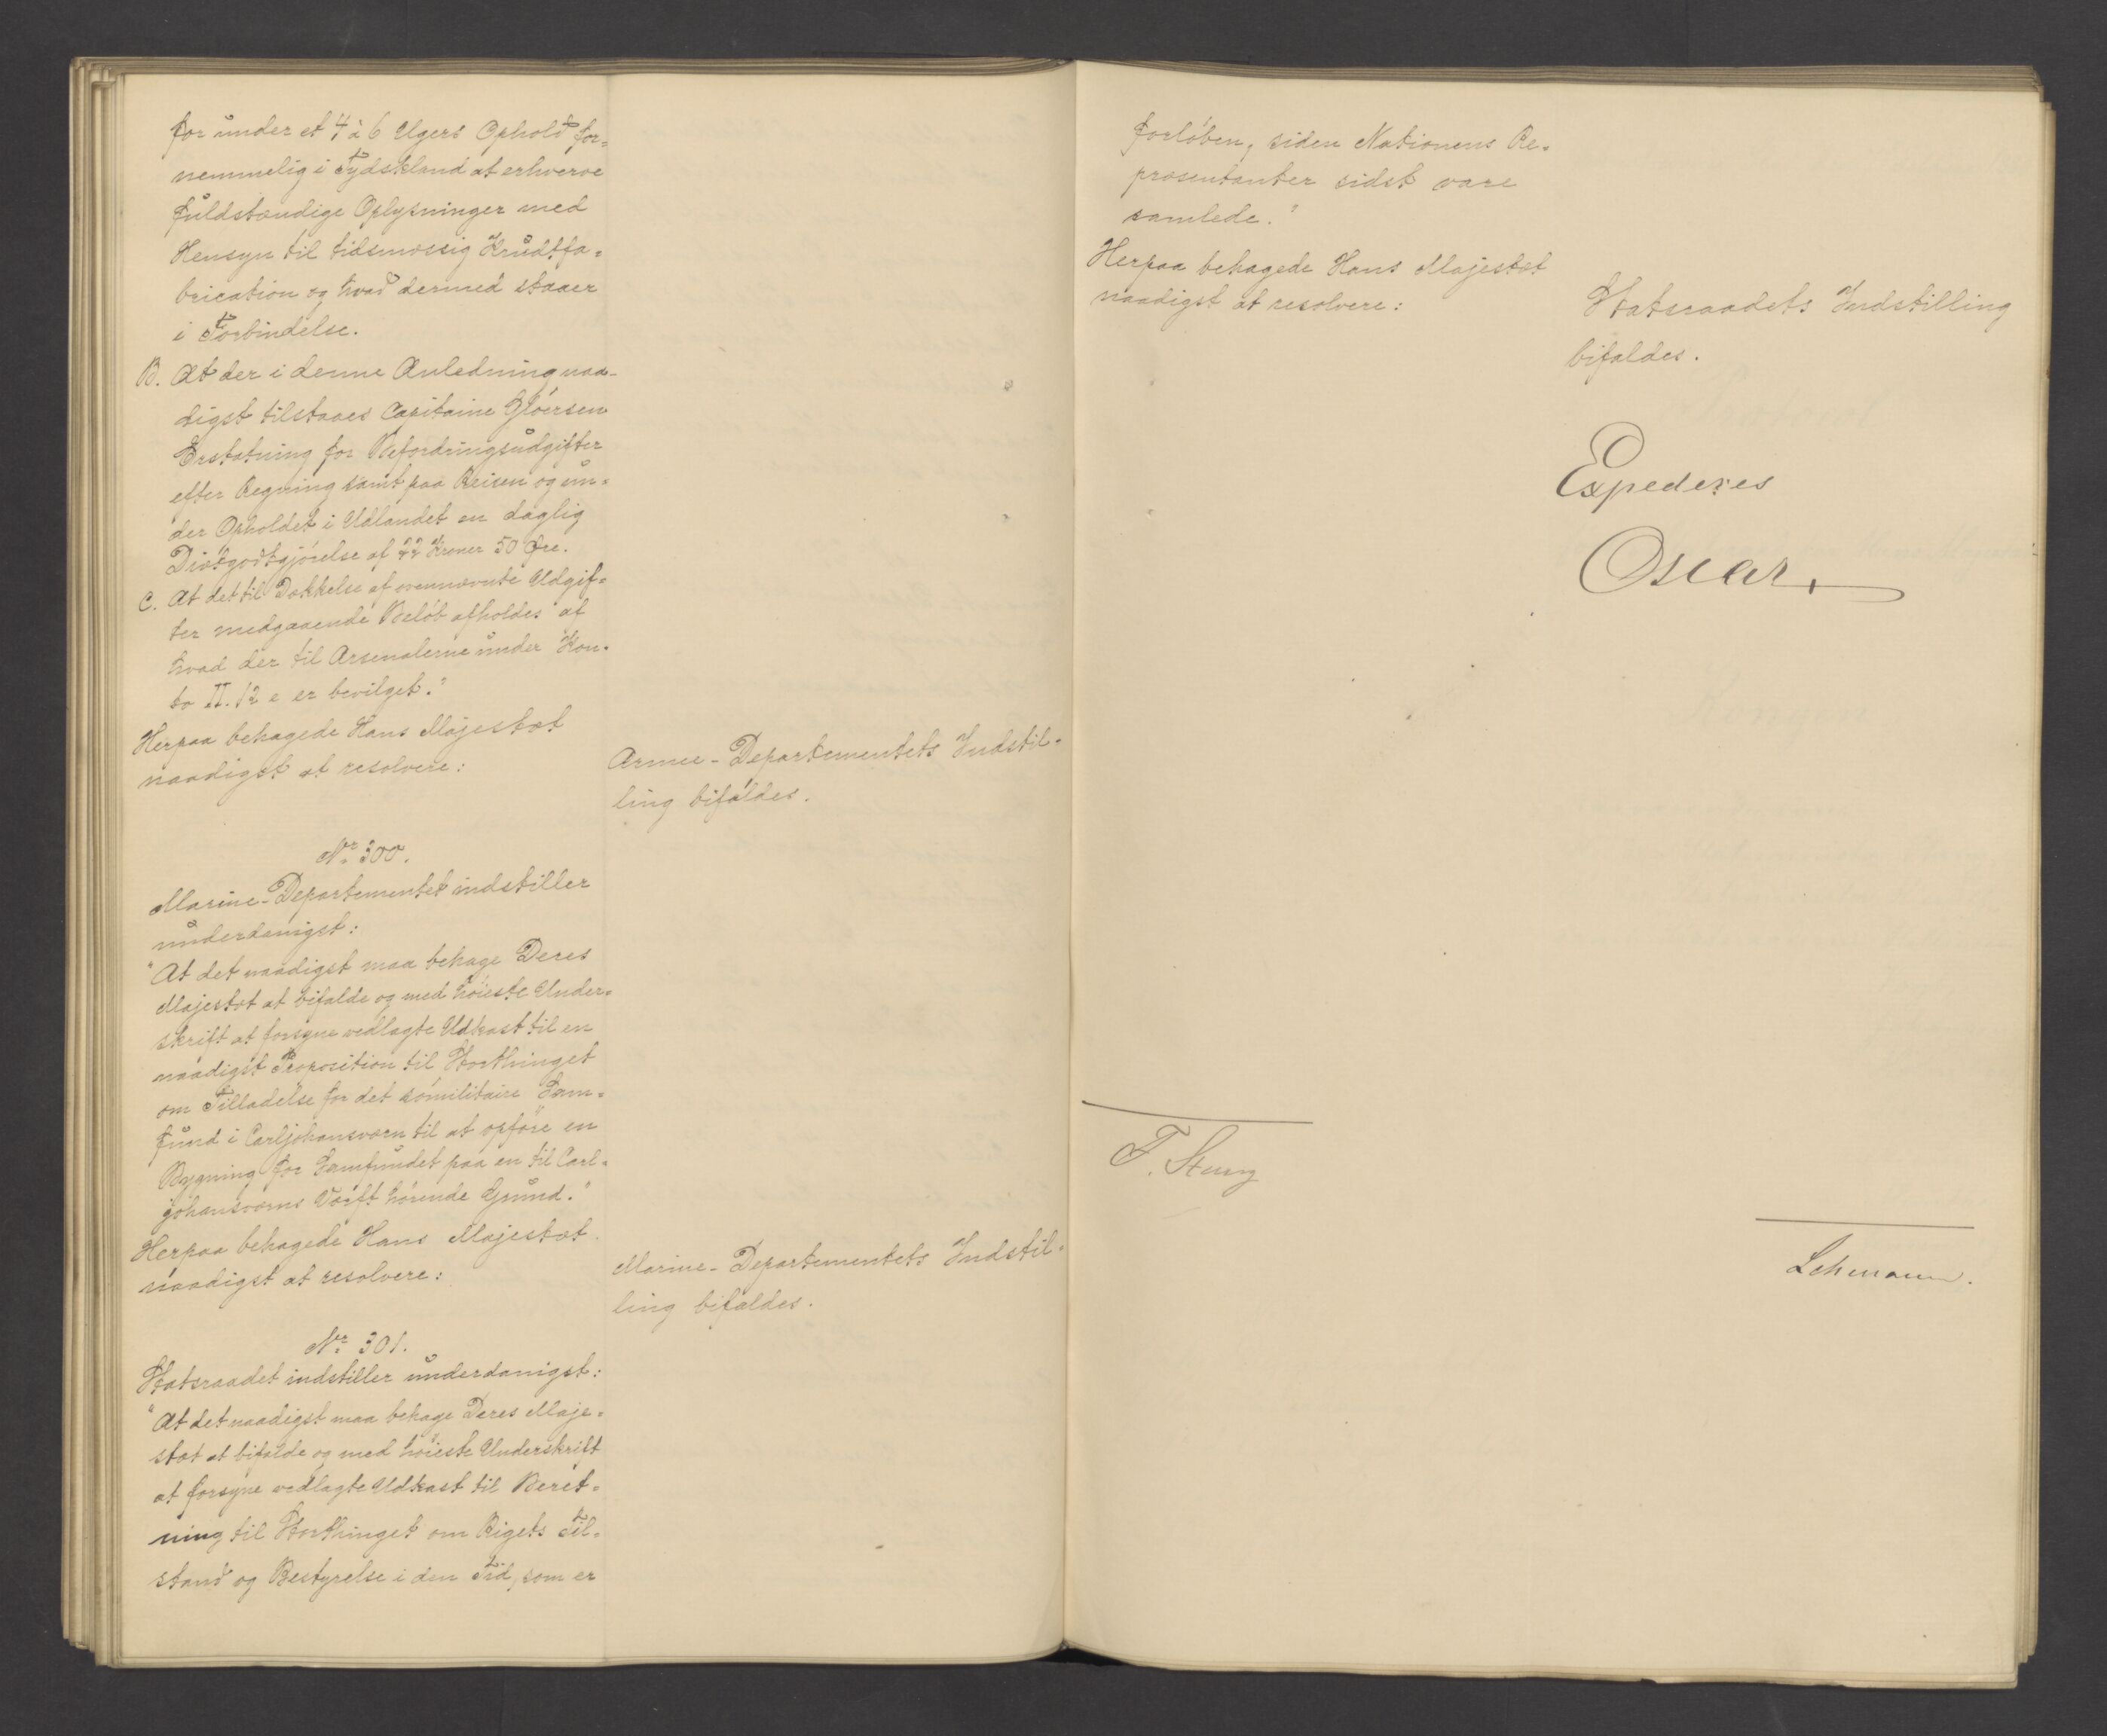 for under et 4 à 6 Ugers Ophold for-
nemmelig i Tydskland at erhverve
fuldstændige Oplysninger med
Hensyn til tidsmæssig Krudtfa-
brication og hvad dermed staaer
i Forbindelse.
B. At der i denne Anledning naa-
digst tilstaaes Capitaine Gløersen
Erstatning for Befordringsudgifter
efter Regning samt paa Reisen og un-
der Opholdet i Udlandet en daglig
Diætgodtgjørelse af 22 Kroner 50 Øre.
C. At det til Dækkelse af ovennævnte Udgif-
ter medgaaende Beløb afholdes af
hvad der til Arsenalerne under Kon-
to II. 12 e er bevilget."
Herpaa behagede Hans Majestæt
naadigst at resolvere:
Armee-Departementets Indstil-
ling bifaldes.
No. 300.
Marine-Departementet indstiller
underdanigst:
"At det naadigst maa behage Deres
Majestæt at bifalde og med høieste Under-
skrift at forsyne vedlagte Udkast til en
naadigst Proposition til Storthinget
om Tilladelse for det sømilitaire Sam-
fund i Carljohansværn til at opføre en
Bygning for Samfundet paa en til Carl-
johansværns Værft hørende Grund."
Herpaa behagede Hans Majestæt
naadigst at resolvere:
Marine-Departementets Indstil-
ling bifaldes.
No. 301.
Statsraadet indstiller underdanigst:
"At det naadigst maa behage Deres Maje-
stæt at bifalde og med høieste Underskrift
at forsyne vedlagte Udkast til Beret-
ning til Storthinget om Rigets Til-
stand og Bestyrelse i den Tid, som er
forløben, siden Nationens Re-
præsentanter sidst vare
samlede."
Herpaa behagede Hans Majestæt
naadigst at resolvere:
Statsraadets Indstilling
bifaldes.
Expederes
Oscar.
F. Stang
Lehmann.